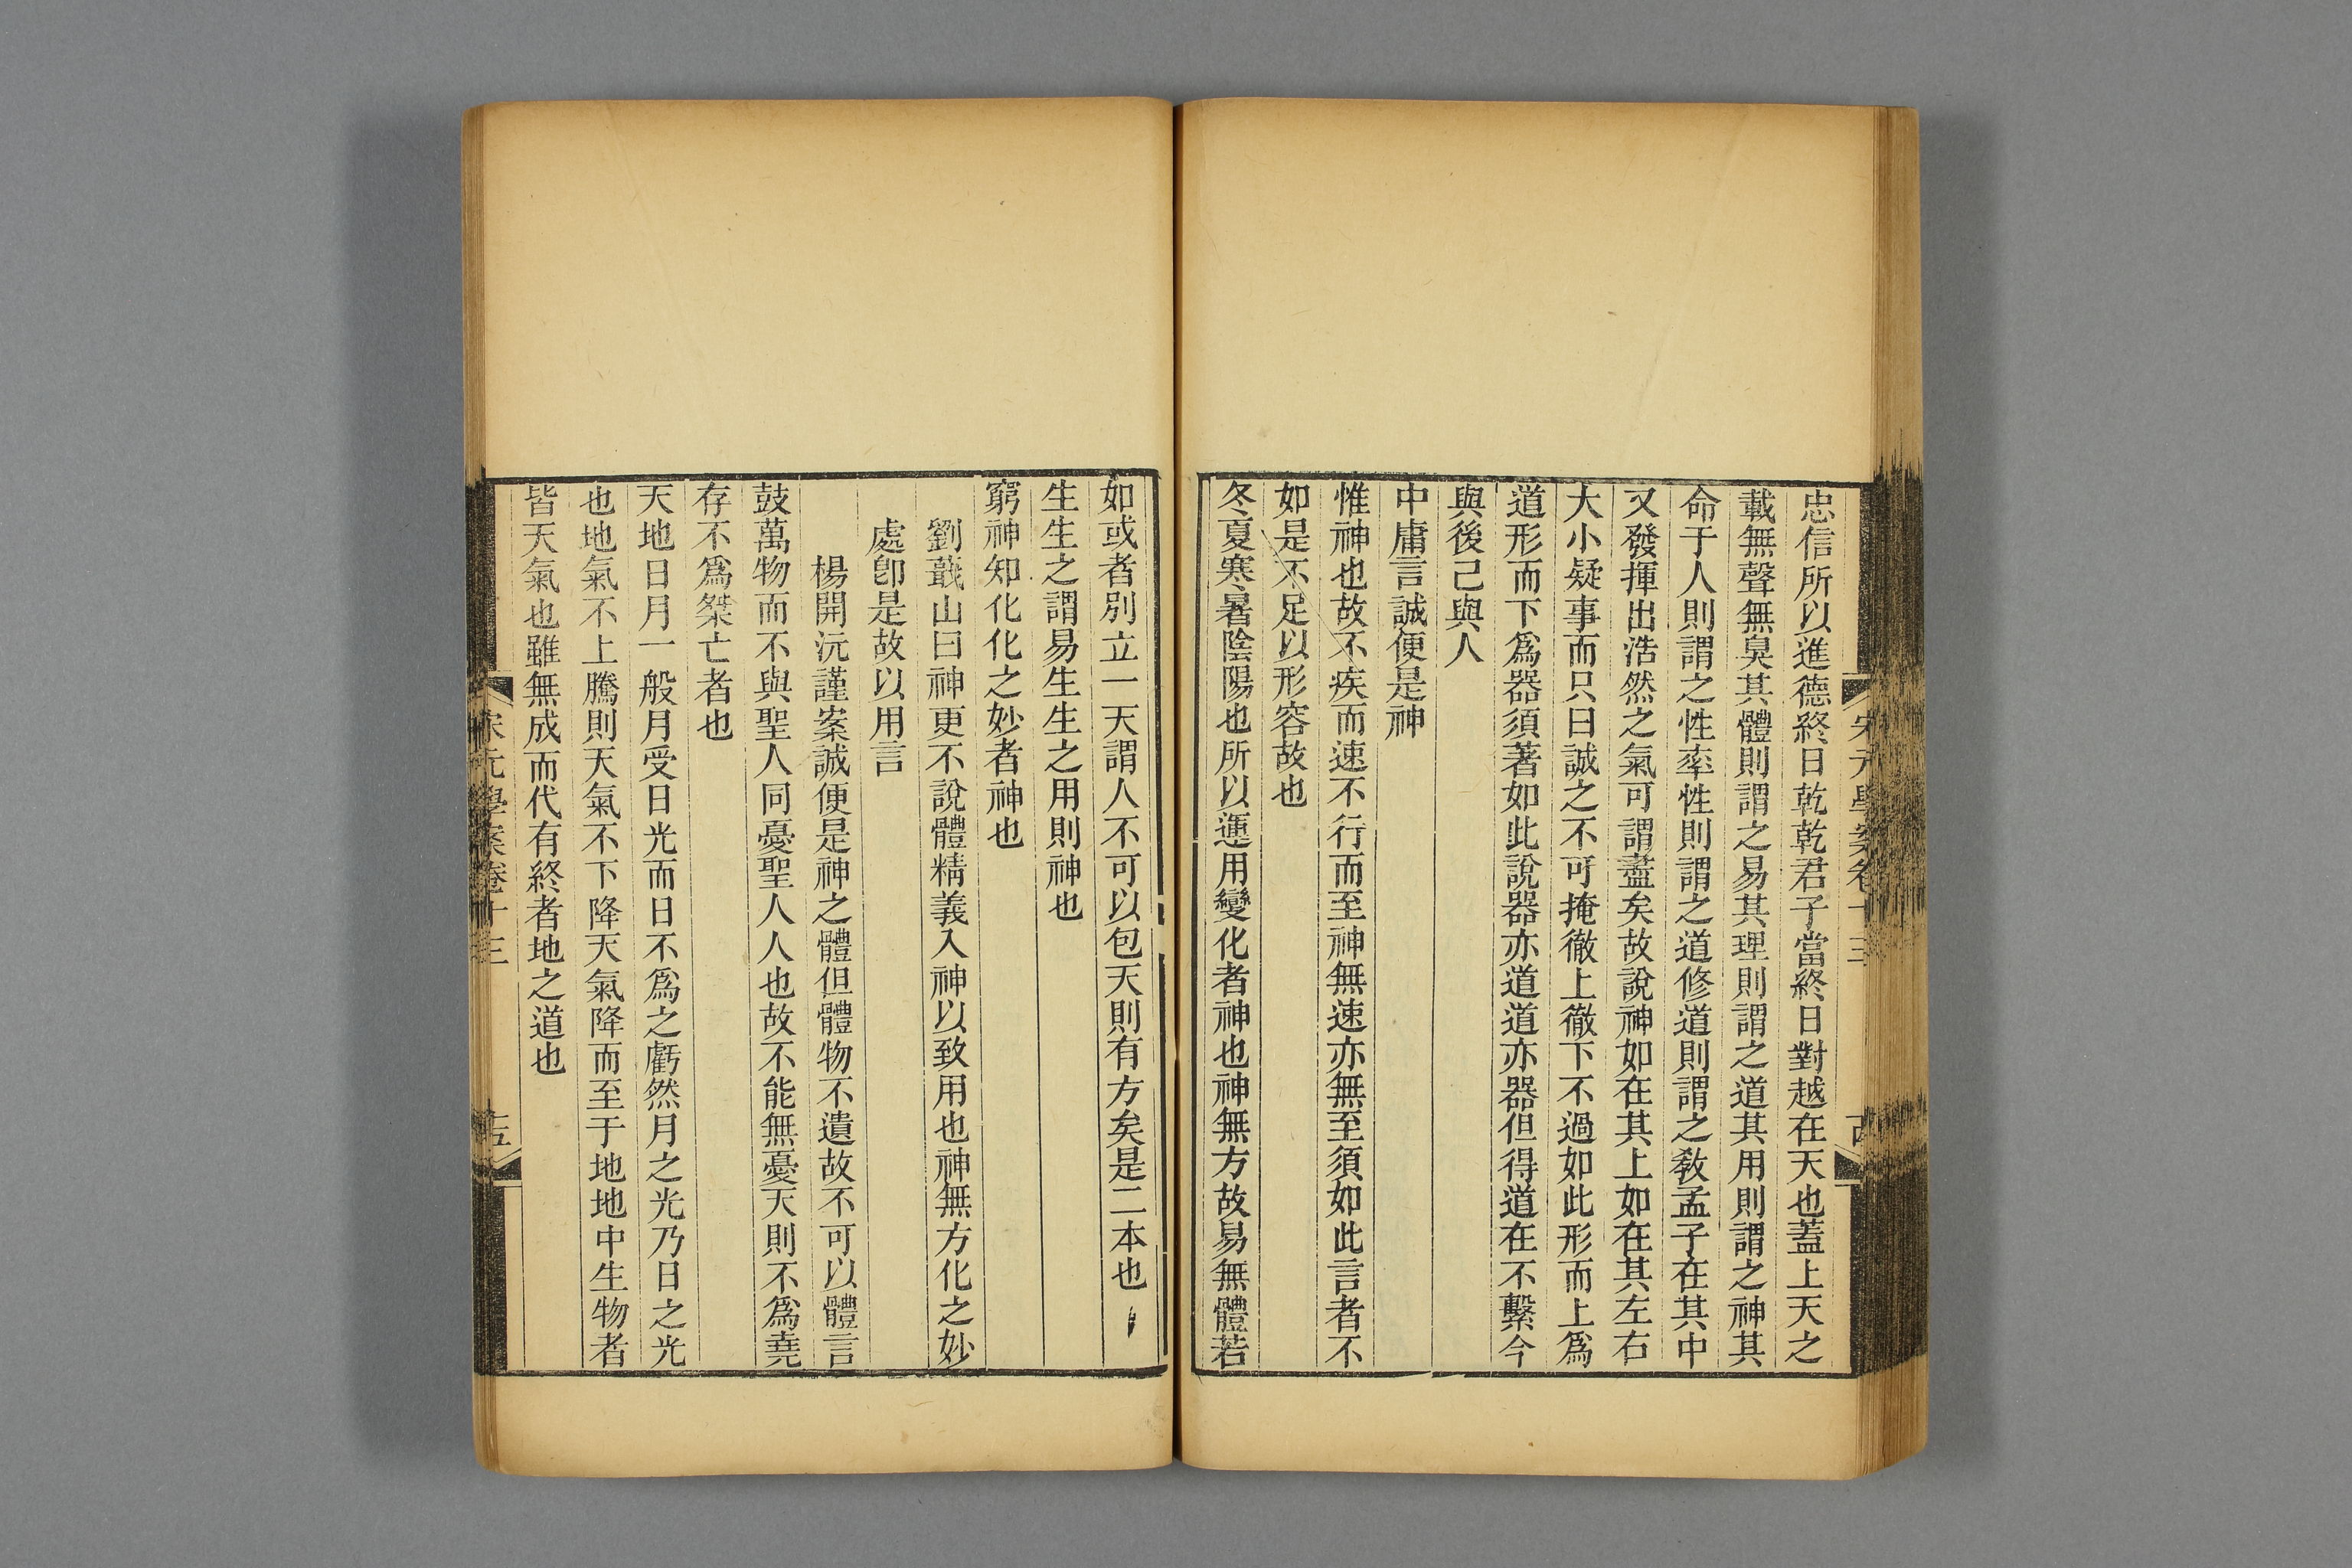 忠信所以進德終日乾乾君子當終日對越在天也蓋上天之
載無聲無臭其體則謂之易其理則謂之道其用則謂之神其
命于人則謂之性率性則謂之道修道則謂之敎孟子在其中
又發揮出浩然之氣可謂盡矣故說神如在其上如在其左右
大小疑事而只曰誠之不可掩徹上徹下不過如此形而上爲
道形而下爲器須著如此說器亦道道亦器但得道在不繫今
與後己與人
中庸言誠便是神
惟神也故不疾而速不行而至神無速亦無至須如此言者不
如是不足以形容故也
冬夏寒暑陰陽也所以運用變化者神也神無方故易無體若
如或者別立一天謂人不可以包天則有方矣是二本也
生生之謂易生生之用則神也
窮神知化化之妙者神也
劉蕺山曰神更不說體精義入神以致用也神無方化之妙
處卽是故以用言
楊開沅謹案誠便是神之體但體物不遺故不可以體言
鼓萬物而不與聖人同憂聖人人也故不能無憂天則不爲堯
存不爲桀亡者也
天地日月一般月受日光而日不爲之虧然月之光乃日之光
也地氣不上騰則天氣不下降天氣降而至于地地中生物者
皆天氣也雖無成而代有終者地之道也
宋元學案卷十三
十五